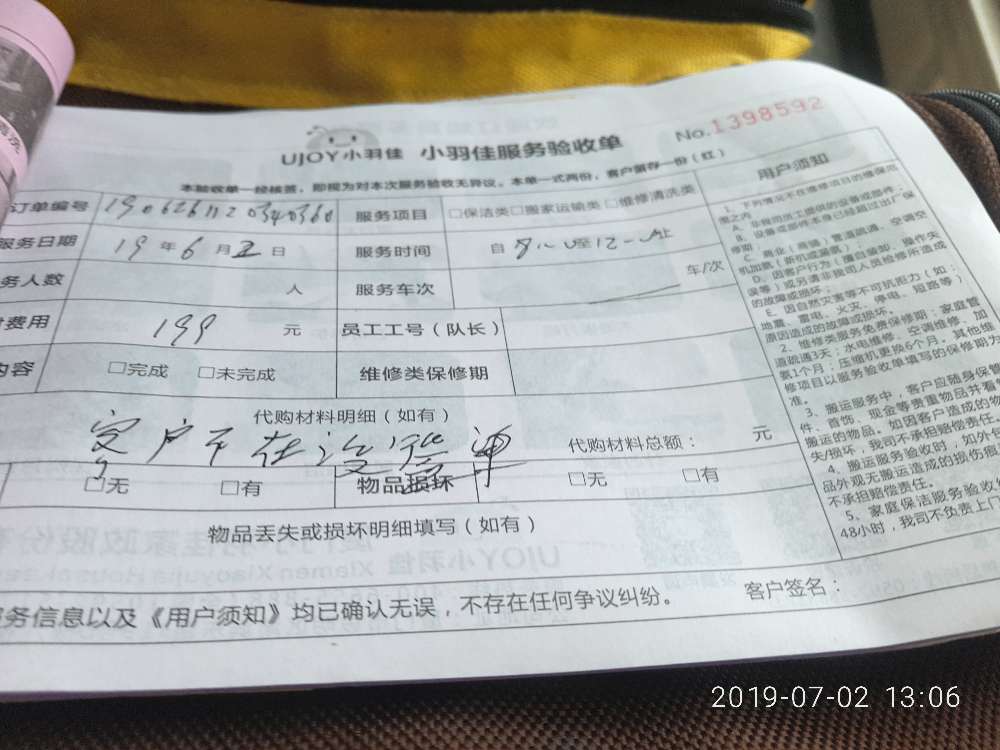 No.1398592
UJOY小羽佳 小羽佳服务验收单
本验收单一经核签，即视为对本次服务验收无异议。本单一式两份，客户留存一份（红）
订单编号 服务项目 □保洁类□搬家运输类□维修清洗类
服务日期 19年6月 日 服务时间 自 至 止
务人数 人 服务车次 车/次
费用 199 元 员工工号（队长）
内容 □完成 □未完成 维修类保修期
代购材料明细（如有） 代购材料总额： 元
客户不在没签单
□无 □有 物品损坏 □无 □有
物品丢失或损坏明细填写（如有）
服务信息以及《用户须知》均已确认无误，不存在任何争议纠纷。 客户签名：
用户须知
1、下列情况不在维修项目的维保范
围之内
A、非我司员工提供的设备或部件；
B、设备或部件本身已经超过出厂保
修期；
C、商业（商铺）管道疏通、空调空
机加氟（新机或漏氟）；
D、因客户行为（擅自装卸、操作失
误等）或另请非我司人员检修所造成
的故障或损坏；
E、因自然灾害等不可抗拒力（如：
地震、雷电、火灾、停电、短路等）
原因造成的故障或损坏。
2、维修类服务免费保修期：家庭管
道疏通3天；水电维修、空调维修、加
氟1个月；压缩机更换6个月。其他维
修项目以服务验收单填写的保修期为
准。
3、搬运服务中，客户应随身保管
件、首饰、现金等贵重物品并看
搬运的物品。如因客户造成的物
失/损坏，我司不承担赔偿责任。
4、搬运服务验收时，如外包
品外观无搬运造成的损伤痕
不承担赔偿责任。
5、家庭保洁服务验收后
48小时，我司不负责上门
2019-07-02 13:06